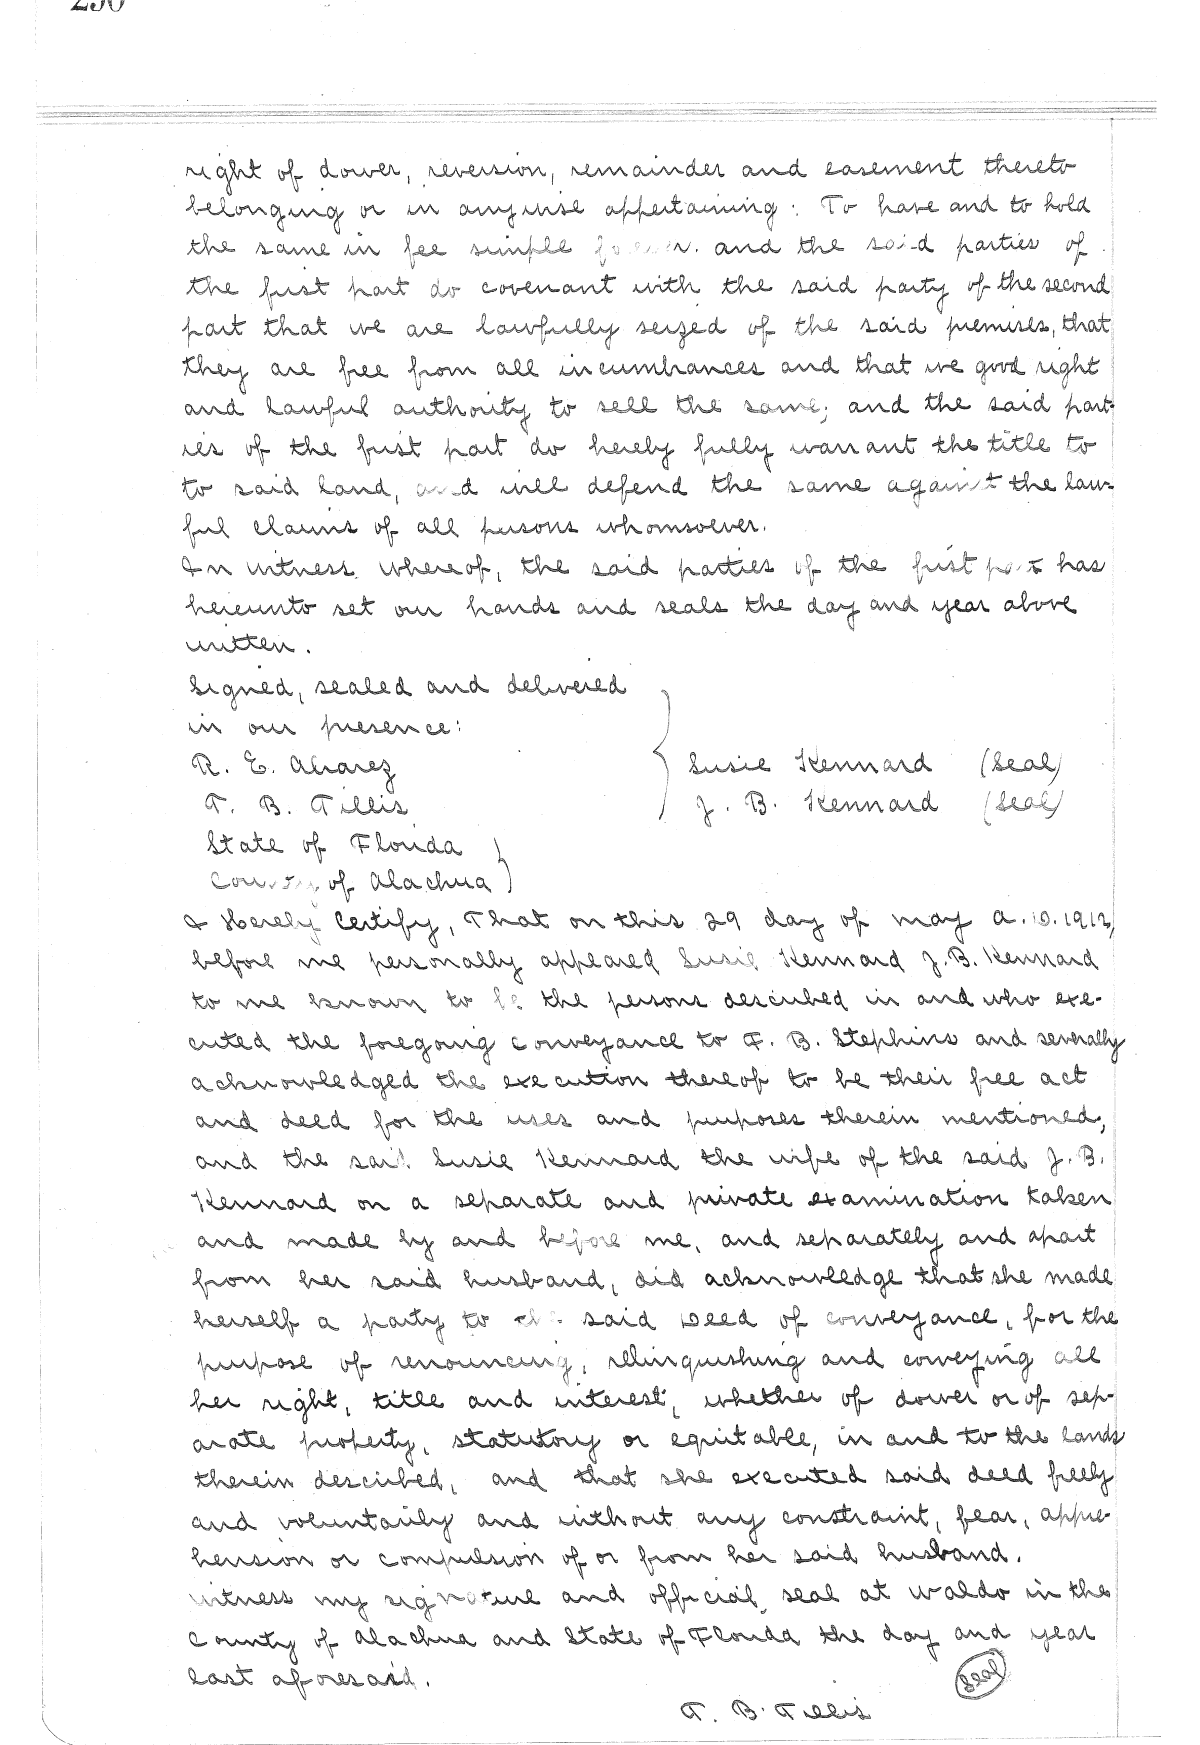 right of dower, reversion, remainder and easement thereto
belonging or in anywise appertaining: To have and to hold
the same in fee simple forever. and the said parties of
the first part do covenant with the said party of the second
part that we are lawfully seized of the said premises, that
they are free from all incumbrances and that we good right
and lawful authority to sell the same; and the said part-
ies of the first part do hereby fully warrant the title to
to said land, and will defend the same against the law-
ful claims of all persons whomsoever.
In witness whereof, the said parties of the first part has
hereunto set our hands and seals the day and year above
written.
Signed, sealed and delivered
in our presence:
R. E. Alvarez Susie Kennard (Seal)
T. B. Tillis J. B. Kennard (Seal)
State of Florida
County of Alachua
I Hereby Certify, That on this 29 day of may A.D. 1912,
before me personally appeared Susie Kennard J.B. Kennard
to me known to be the persons described in and who exe-
cuted the foregoing conveyance to F. B. Stephins and severally
acknowledged the execution thereof to be their free act
and deed for the uses and purposes therein mentioned;
and the said Susie Kennard the wife of the said J. B.
Kennard on a separate and private examination taken
and made by and before me, and separately and apart
from her said husband, did acknowledge that she made
herself a party to the said Deed of conveyance, for the
purpose of renouncing, relinquishing and conveying all
her right, title and interest, whether of dower or of sep-
arate property, statutory or equitable, in and to the lands
therein described, and that she executed said deed freely
and voluntarily and without any constraint, fear, appre-
hension or compulsion of or from her said husband.
Witness my signature and official seal at Waldo in the
County of Alachua and State of Florida the day and year
last aforesaid.
Seal
T. B. Tillis